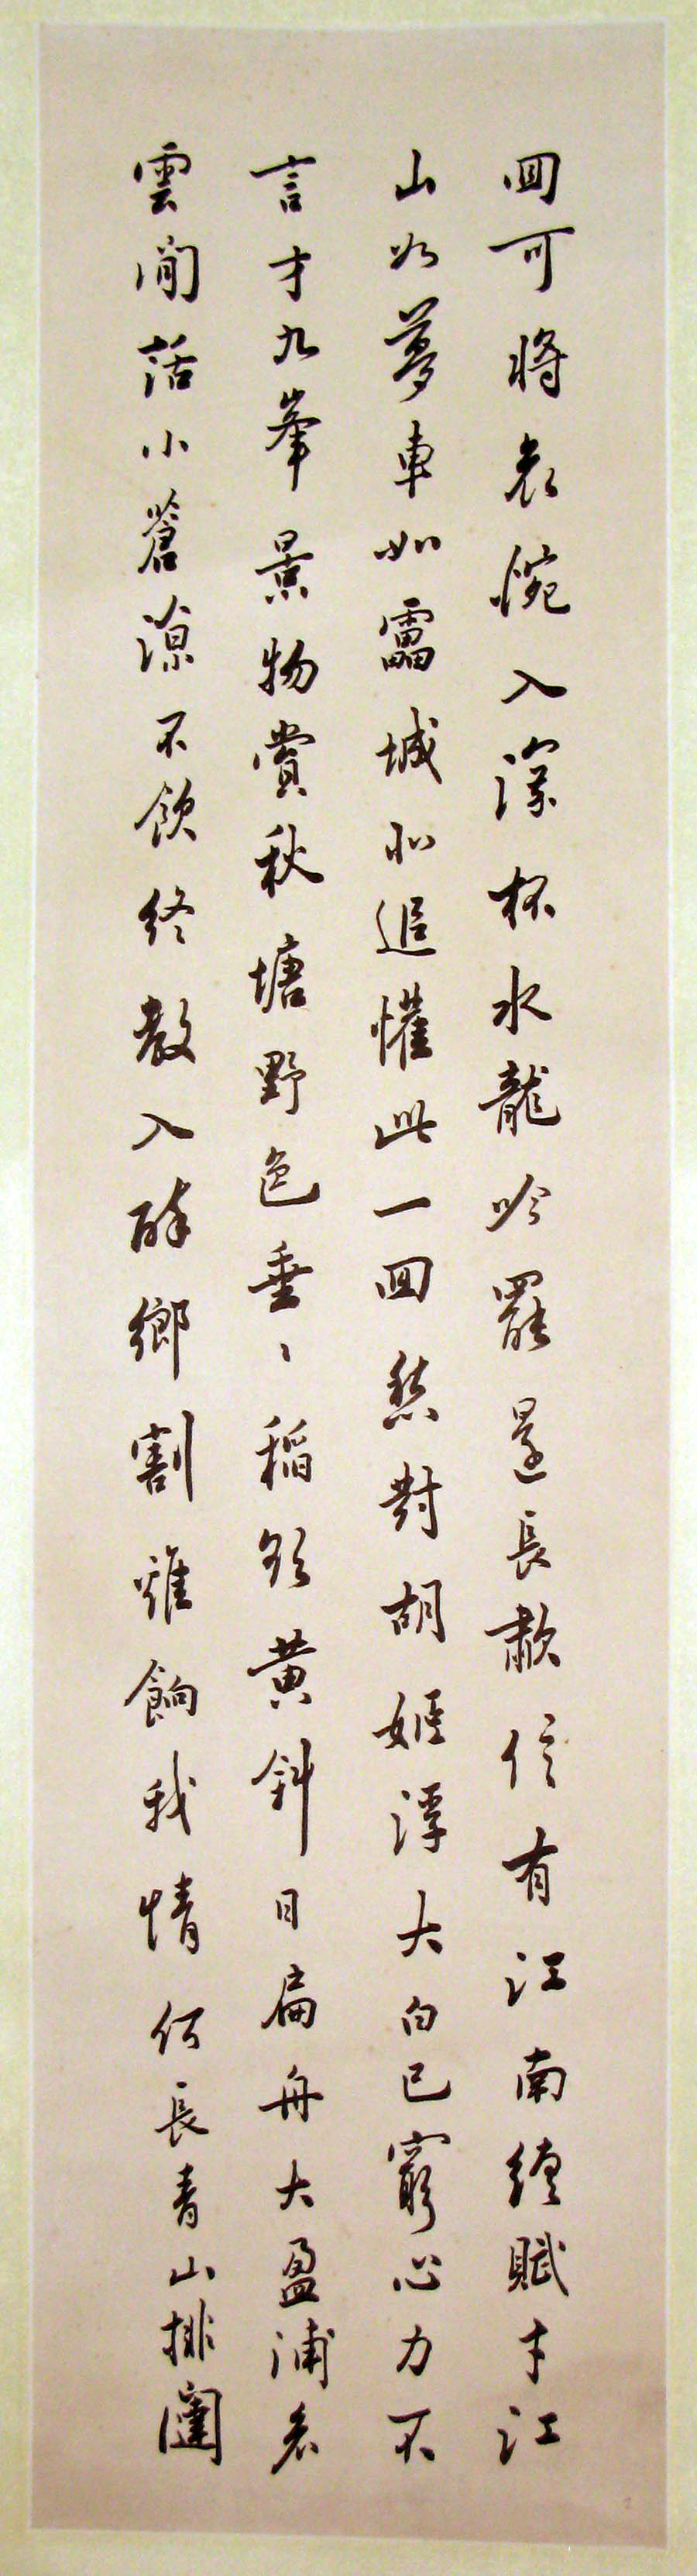 回可將哀惋入深杯水龍吟罷還長歗信有江南續賦才江
山如夢車如靁城北追懽此一回愁對胡姬浮大白已窮心力不
言才九峯景物賞秋塘野色垂〻稻欲黄斜日扁舟大盈浦老
雲閒話小蒼涼不飲終教入醉鄉割雞餉我情何長青山排闥